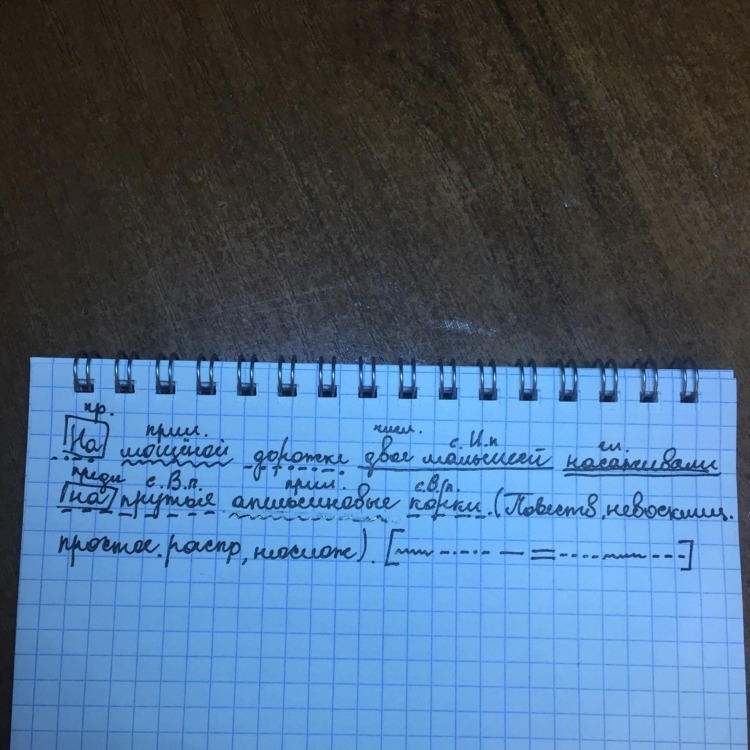 пр. прил. числ. с. И.п гл.
На мощёной дорожке двое малышей насаживали
предл с. В.п. прил. с.В.п.
на прутья апельсиновые корки. (Повеств, невосклиц.
простое. распр, неослож). [ ]